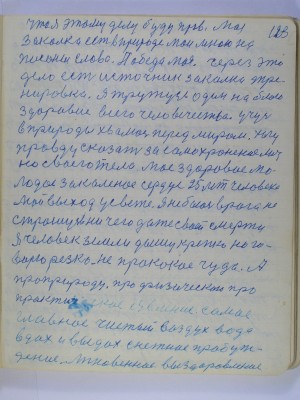 этому делу буду прв. Моя 123
Закалка есть в природе мои мною на
слово. Победа моя. через это
дело ест источник закалка тре
нировка. Я тружусь один на благо
здоровие всего человечества. учус
в природы хвалюс перед миром. Хочу
правду сказат за самохронение лич
но своего тела. Мое здоровое мо
лодое закаленое сердце 25 лет человека
Мой выход у свете. Я не боюс врага не
страшус ничего даже своей смерти
Я человек земли дышу крепко на го
вору резко. не про какое чудо. А
про природу. про физическое про
практическое главное самое
главное чистый воздух вода
вдох и выдох снежное пробуж-
дение. Мгновенное выздоровление